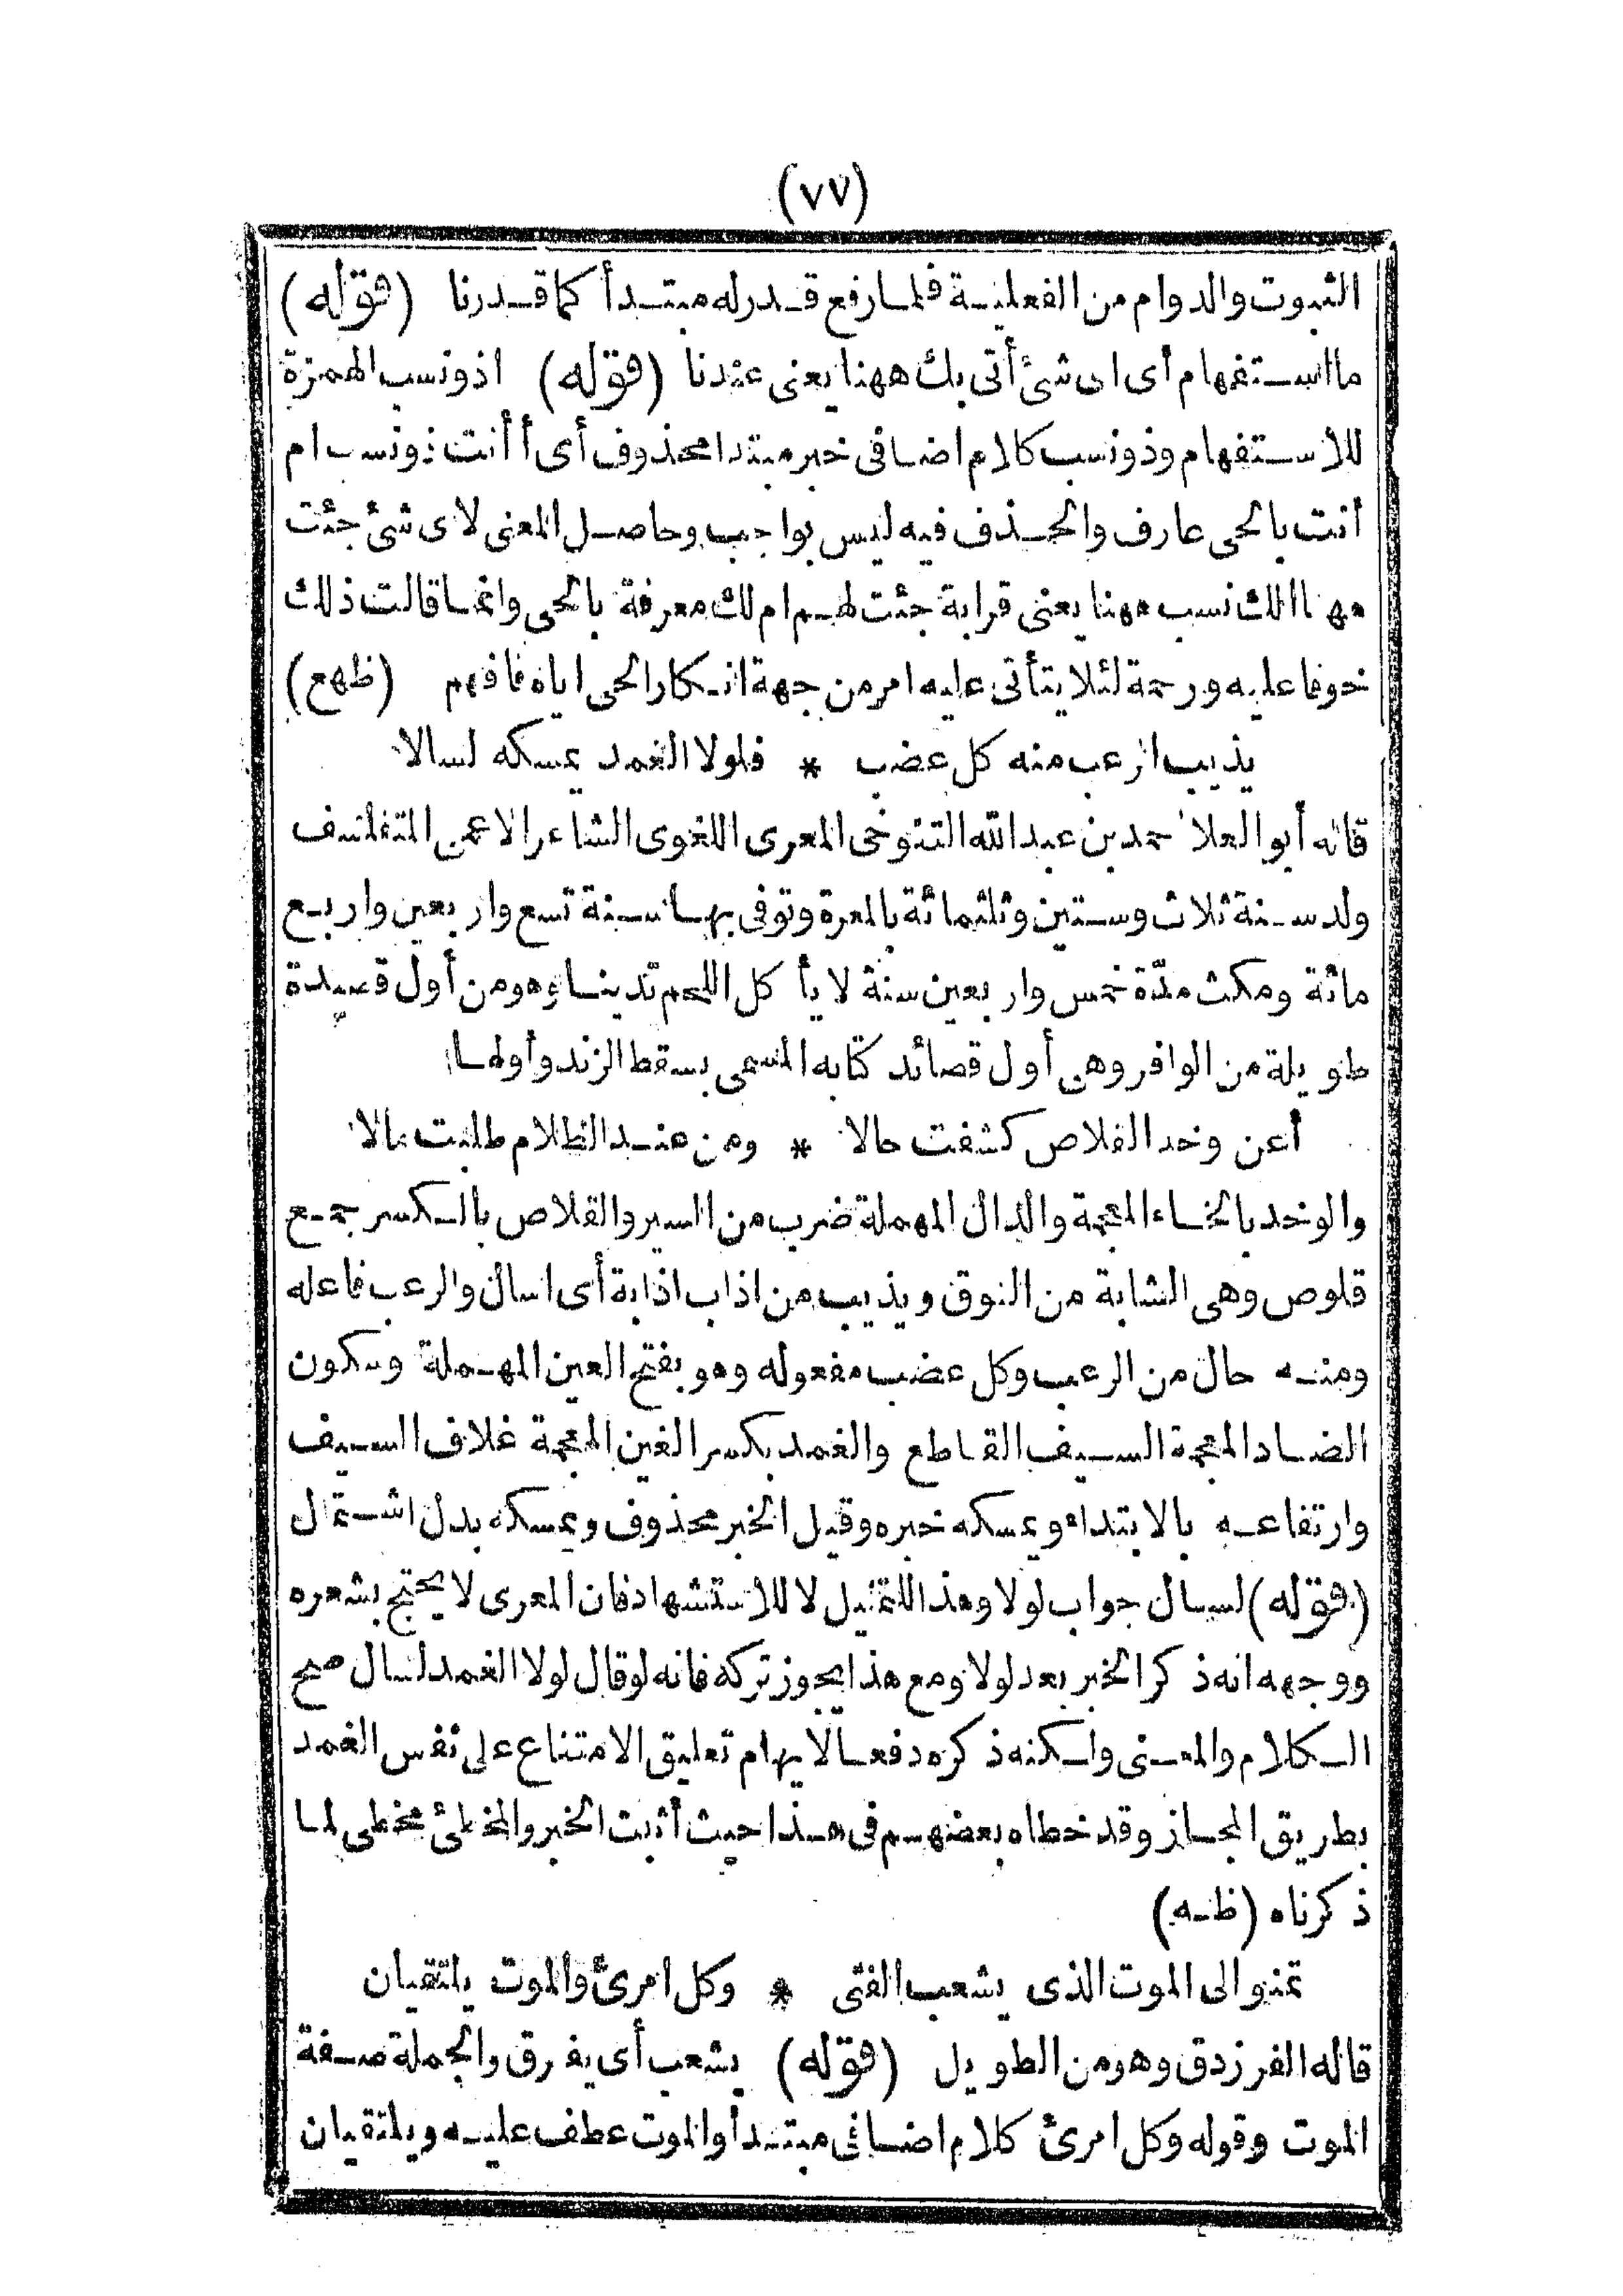 (٧٧)
الثبوت والدوام من الفعلية فلما رفع قدر له مبتدأ كما قدرنا (قوله)
ما استفهام أى اى شئ أتى بك ههنا يعنى عندنا (قوله) اذو نسب الهمزة
للاستفهام وذو نسب كلام اضافى خبر مبتدا محذوف أى أ أنت ذو نسب ام
أنت بالحى عارف والحذف فيه ليس بواجب وحاصل المعنى لاى شئ جئت
ههنا الك نسب ههنا يعنى قرابة جئت لهم ام لك معرفة بالحى وانما قالت ذلك
خوفا عليه ورحمة لئلا يتأتى عليه امر من جهة انكار الحى اياه فافهم (ظهع)
يذيب الرعب منه كل عضب * فلولا الغمد يمسكه لسالا
قاله أبو العلا حمد بن عبد الله التنوخى المعرى اللغوى الشاعر الاعمى المتفلسف
ولد سنة ثلاث وستين وثلثمائة بالمعرة وتوفى بها سنة تسع واربعين واربع
مائة ومكث مدّة خمس واربعين سنة لا يأكل اللحم تدينا وهو من أول قصيدة
طويلة من الوافر وهى أول قصائد كتابه المسمى بسقط الزند وأولها
أعن وخد القلاص كشفت حالا * ومن عند الظلام طلبت مالا
والوخد بالخاء المعجمة والدال المهملة ضرب من السير والقلاص بالكسر جمع
قلوص وهى الشابة من النوق ويذيب من اذاب اذابة أى اسال والرعب فاعله
ومنه حال من الرعب وكل عضب مفعوله وهو بفتح العين المهملة وسكون
الضاد المعجمة السيف القاطع والغمد بكسر الغين المعجمة غلاف السيف
وارتفاعه بالابتداء ويمسكه خبره وقيل الخبر محذوف ويمسكه بدل اشتمال
(قوله) لسال جواب لولا وهذا للتمثيل لا للاستشهاد فان المعرى لا يحتج بشعره
ووجهه انه ذكر الخبر بعد لولا ومع هذا يجوز تركه فانه لو قال لولا الغمد لسال صح
الكلام والمعنى ولكنه ذكره دفعا لايهام تعليق الامتناع على نفس الغمد
بطريق المجاز وقد خطاه بعضهم فى هذا حيث أثبت الخبر والمخطئ مخطى لما
ذكرناه (ظه)
تمنوا لى الموت الذى يشعب الفتى * وكل امرئ والموت يلتقيان
قاله الفرزدق وهو من الطويل (قوله) يشعب أى يفرق والجملة صفة
الموت وقوله وكل امرئ كلام اضافى مبتدأ والموت عطف عليه ويلتقيان